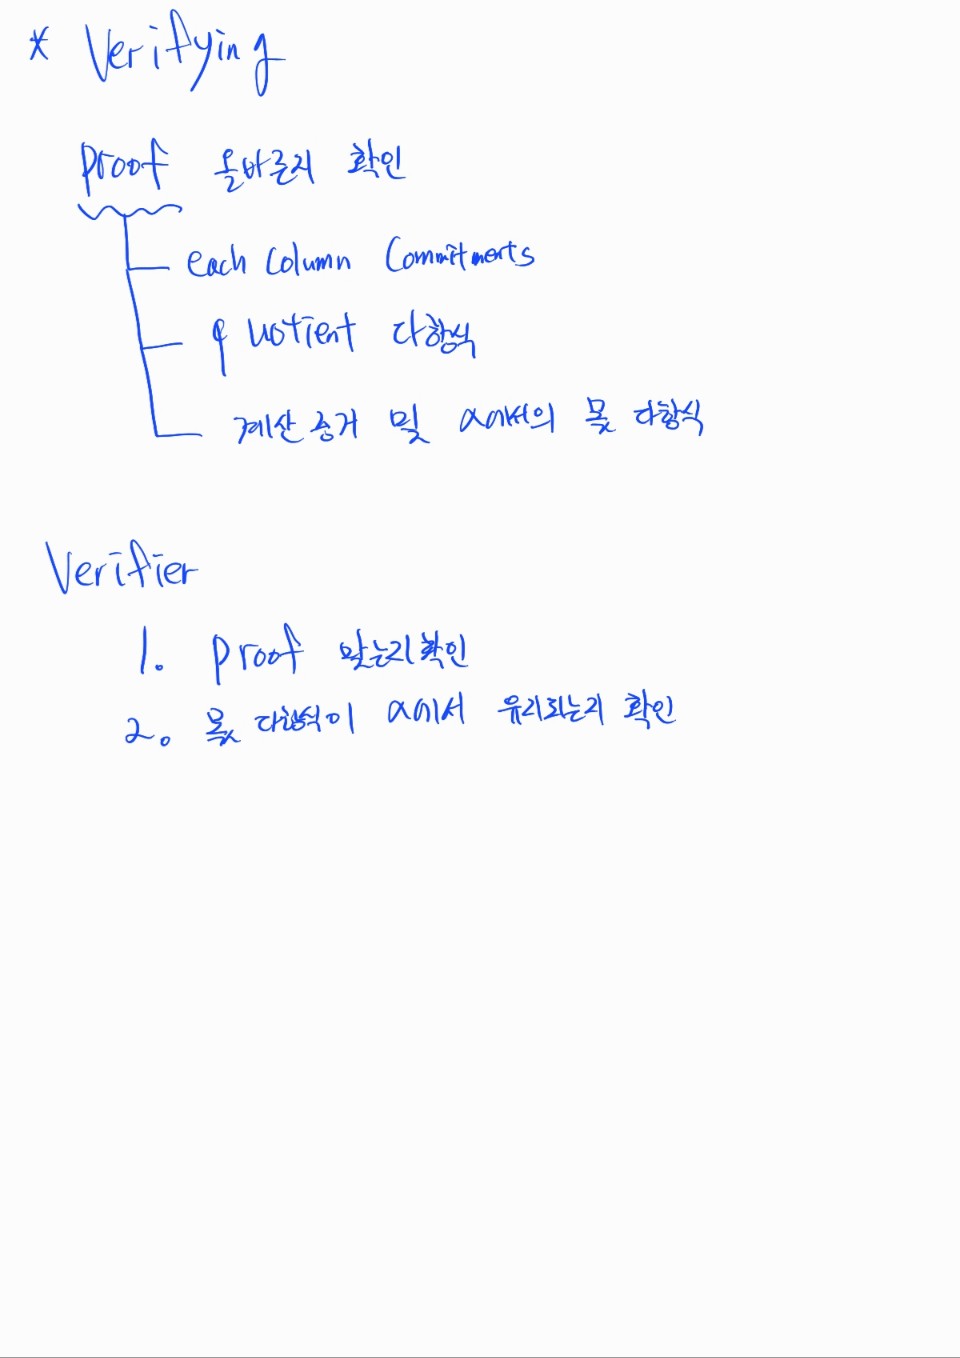 * Verifying
proof 올바른지 확인
each column Commitments
quotient 다항식
계산 증거 및 α에서의 몫 다항식
Verifier
1. proof 맞는지 확인
2. 몫 다항식이 α에서 유리되는지 확인